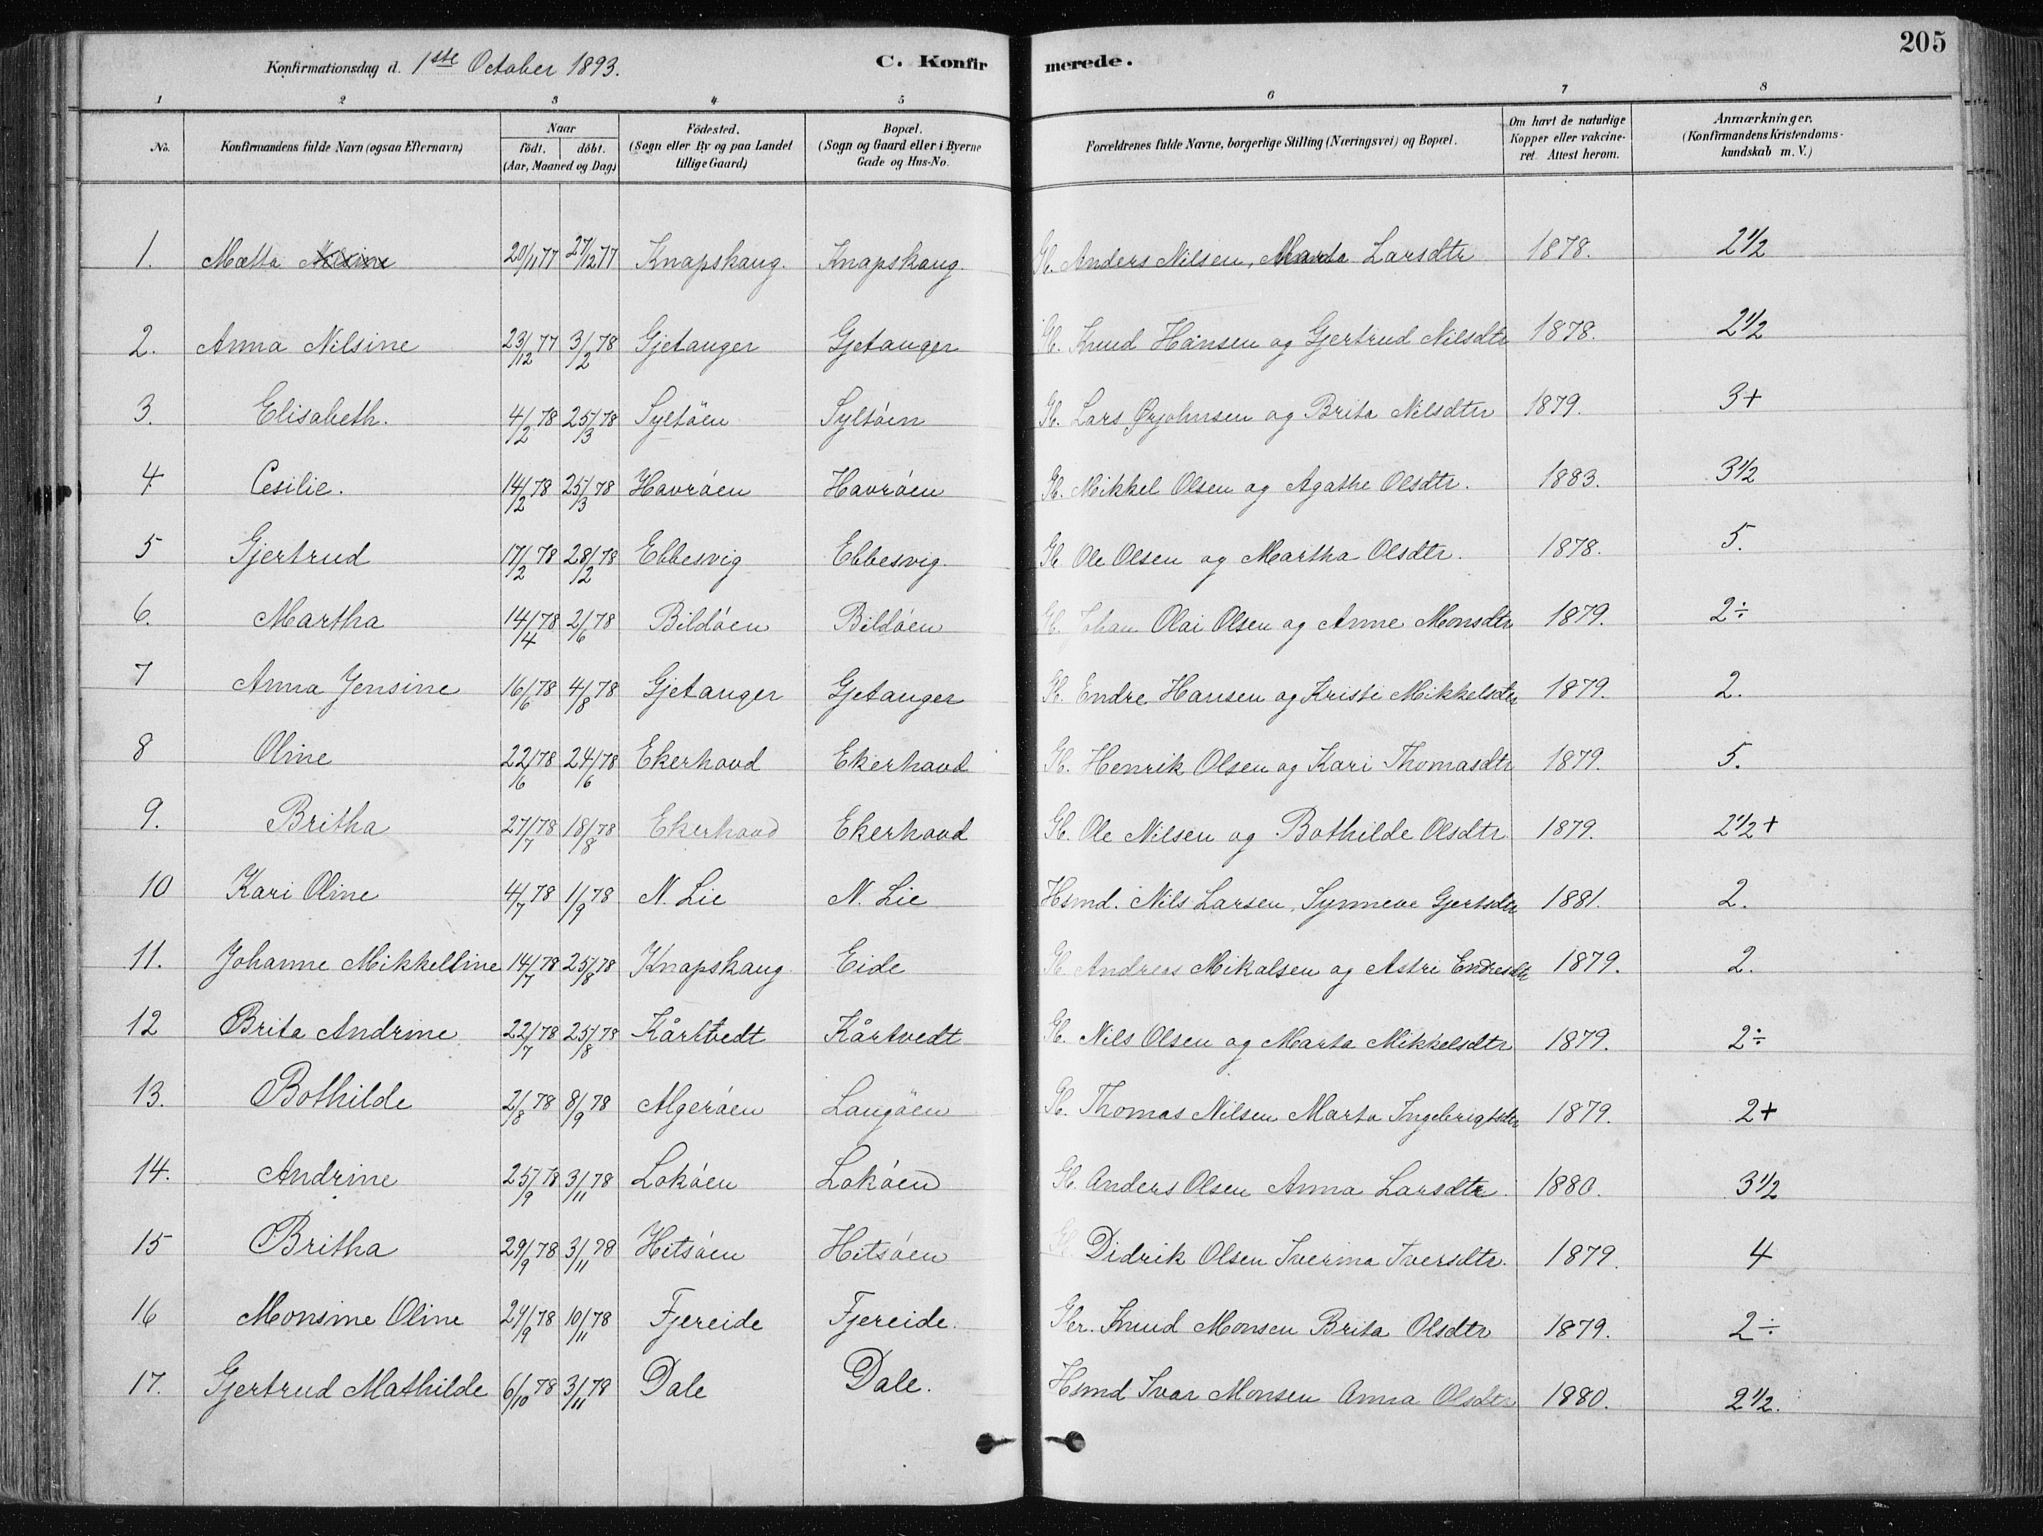 205
Konfirmationsdag d. 1ste October 1893. C. Konfirmerede.
1 2 3 4 5 6 7 8
No. Konfirmandens fulde Navn (ogsaa Efternavn) Naar født. døbt. (Aar, Maaned og Dag) Fødested. (Sogn eller By og paa Landet tillige Gaard) Bopæl. (Sogn og Gaard eller i Byerne Gade og Hus-No. Forældrenes fulde Navne, borgerlige Stilling (Næringsvei) og Bopæl. Om havt de naturlige Kopper eller vakcineret. Attest herom. Anmærkninger. (Konfirmandens Kristendomskundskab m. V.)
1. Mætta 20/11 77 27/12 77 Knapskaug. Knapskaug. Gb. Anders Nilsen, Marta Larsdtr 1878. 2 1/2
2. Anna Nilsine 23/12 77 3/2 78 Gjetanger Gjetanger Gb. Knud Hansen og Gjertrud Nilsdtr 1878. 2 1/2
3. Elisabeth. 4/2 78 25/3 78 Syltöen Syltóen Gb. Lars Ørjohnsen og Brita Nilsdtr 1879. 3+
4 Cesilie. 14/2 78 25/3 78 Havróen Havróen Gb. Mikkel Olsen og Agathe Olsdtr. 1883. 3 1/2
5 Gjertrud 17/2 78 28/2 78 Ebbesvig Ebbesvig. Gb Ole Olsen og Martha Olsdtr. 1878. 5.
6. Martha 14/4 78 2/6 78 Bildóen Bildóen Gb. Johan Olai Olsen og Anne Monsdtr 1879. 2÷
7 Anna Jensine 16/6 78 4/8 78 Gjetanger Gjetanger Gb. Endre Hansen og Kristi Mikkelsdtr 1879. 2.
8 Oline 22/6 78 24/6 78 Ekerhovd Ekerhovd Gb. Henrik Olsen og Kari Thomasdtr 1879. 5.
9. Britha 27/7 78 18/8 78 Ekerhovd Ekerhovd Gb. Ole Nilsen og Bothilde Olsdtr 1879. 2 1/2+
10 Kari Oline 4/7 78 1/9 78 N. Lie N. Lie Hsmd. Nils Larsen, Synneve Gjertsdtr 1881. 2.
11. Johanne Mikkelline 14/7 78 25/8 78 Knapskaug Eide Gb. Andreas Mikalsen og Astri Endresdtr 1879. 2.
12 Brita Andrine 22/7 78 25/8 78 Kårtvedt Kårtvedt Gb. Nils Olsen og Marta Mikkelsdtr 1879. 2÷
13. Bothilde 2/8 78 8/9 78 Algeróen Langöen Gb. Thomas Nilsen Marta Ingebrigtsdtr 1879. 2+
14. Andrine 25/9 78 3/11 78 Lokóen Lokóen Gb. Anders Olsen Anna Larsdtr. 1880. 3 1/2
15 Britha 29/9 78 3/11 78 Hitsóen Hitsóen Gb Didrik Olsen Iverina Iversdtr. 1879. 4
16 Monsine Oline 24/9 78 10/11 78 Fjereide Fjereide. Gbr. Knud Monsen Brita Olsdtr 1879. 2÷
17. Gjertrud Mathilde 6/10 78 3/11 78 Dale Dale. Hsmd Ivar Monsen Anna Olsdtr 1880. 2 1/2.